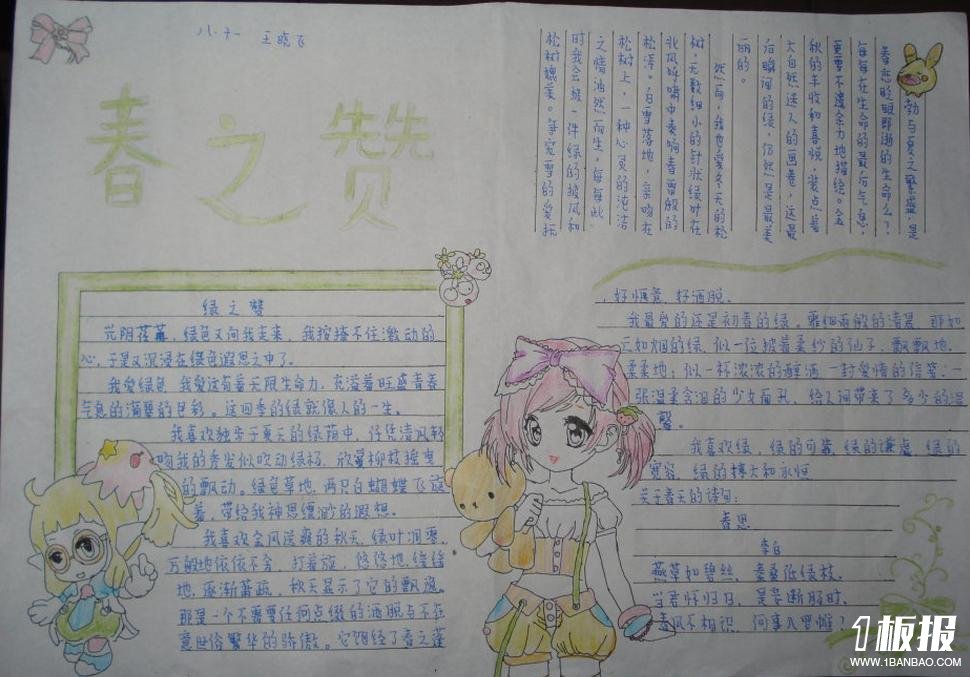 八.十一 王晓飞
春之赞
绿之赞
光阴荏苒,绿色又向我走来,我按捺不住激动的
心,于是又沉浸在绿色遐思之中了。
我爱绿色,我爱这有着无限生命力,充溢着旺盛青春
气息的满翠的色彩。这四季的绿就像人的一生。
我喜欢独步于夏天的绿荫中,任凭清风轻
吻我的秀发似吹动绿杨,欣赏柳枝摇曳
的飘动。绿色草地,两只白蝴蝶飞旋
着,带给我神思缥缈的遐想。
我喜欢金风送爽的秋天,绿叶凋零,
万般地依依不舍,打着旋,悠悠地,缕缕
地,逐渐萧疏,秋天显示了它的飘逸。
那是一个不需要任何点缀的洒脱与不在
意世俗繁华的骄傲。它饱经了春之蓬
勃与夏之繁盛,是
春恋眨眼即逝的生命么?
每每在生命的最后气息,
更要不遗余力地描绘。金
秋的丰收和喜悦,装点着
大自然迷人的画卷,这最
后瞬间的绿,仍然是最美
丽的。
然而,我也爱冬天的松
树,无数细小的针状绿叶在
北风呼啸中奏响春雷般的
松涛。白雪落地,亲吻在
松树上,一种心灵的纯洁
之情油然而生,每每此
时我会被一件绿的披风和
松树媲美。争宠雪的爱抚
,好惬意,好洒脱。
我最爱的还是初春的绿。雅细雨般的清晨,那如
云如烟的绿,似一位披着柔纱的仙子,飘飘地,
柔柔地,似一杯浓浓的醇酒,一封爱情的信笺;一
张温柔含泪的少女面孔,给人间带来了多少的温
馨。
我喜欢绿,绿的可靠,绿的谦虚,绿的
宽容,绿的博大和永恒
关于春天的诗句:
春思
李白
燕草如碧丝,秦桑低绿枝。
当君怀归日,是妾断肠时。
春风不相识,何事入罗帏?
1板报
WWW.1BANBAO.COM